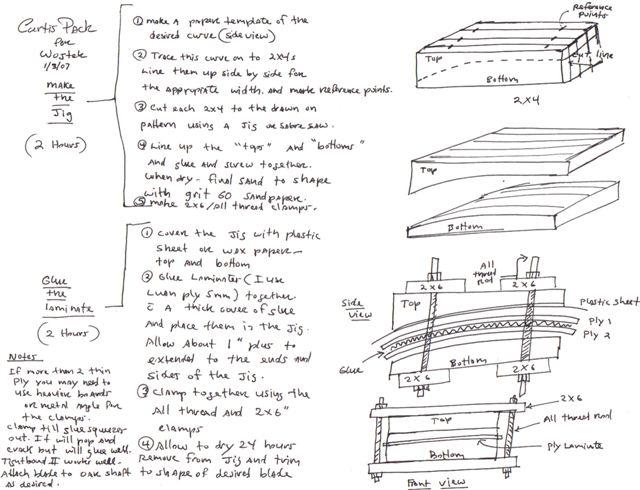 Curtis Peck
for
Wostek
1/8/07
make
the
Jig
(2 Hours)
① make a paper template of the
desired curve (side view)
② Trace this curve on to 2x4s
Line them up side by side for
the appropriate width. and mark reference points.
③ Cut each 2x4 to the drawn on
pattern using a Jig or sabre saw.
④ Line up the "tops" and "bottoms"
and glue and screw together.
when dry - final sand to shape
with grit 60 sandpaper.
⑤ make 2x6/all thread clamps.
Glue
the
laminate
(2 Hours)
① cover the Jig with plastic
sheet or wax paper -
top and bottom
② Glue Laminates (I use
Luan ply 5mm) together.
c̄ a thick cover of glue
and place them in the Jig.
Allow about 1" plus to
extended to the ends and
sides of the Jig.
③ Clamp together using the
All thread and 2x6"
clamps
④ Allow to dry 24 hours
Remove from Jig and trim
to shape of desired blade
Notes
If more than 2 thin
Ply you may need to
use heavier boards
or metal angle for
the clamps.
clamp till glue squeezes
out. It will pop and
crack but will glue well.
Tightbond II works well.
Attach blade to oar shaft
as desired.
Reference
Points
Top
Bottom
cut line
2x4
Top
Bottom
All
thread
rod
2x6
2x6
Side
view
Top
Plastic sheet
Ply 1
Ply 2
Glue
Bottom
2x6
2x6
2x6
Top
All thread rod
Ply Laminate
Bottom
Front view